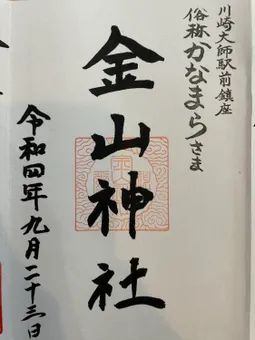 川崎大師駅前鎮座
俗称かなまらさま
金山神社
令和四年九月二十三日